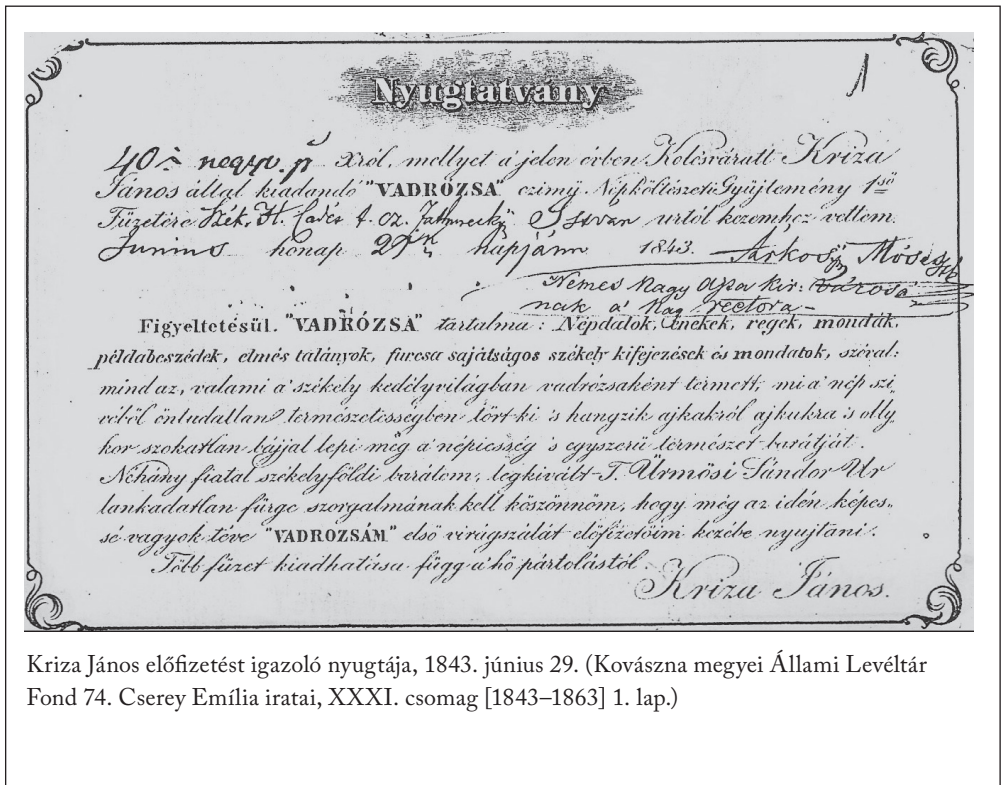 1
Nyugtatvány
40 negyv. p xról, mellyet a' jelen évben Kolosváratt Kriza
János által kiadandó "VADRÓZSA" czimű Népköltészeti Gyüjtemény 1ső
Füzetére Szék. t. cz. István urtól kezemhez vettem.
Junius hónap 29 napjánn 1843. Árkosy Mózes
Nemes Nagy Ajta kir: városá
nak a' rectora
Figyeltetésül. "VADRÓZSA" tartalma: Népdalok, énekek, regék, mondák,
példabeszédek, elmés talányok, furcsa sajátságos székely kifejezések és mondatok, szóval:
mind az, valami a' székely kedélyvilágban vadrózsaként termett, mi a' nép szi„
véből öntudatlan természetességben tört-ki 's hangzik ajkakról ajkukra 's olly
kor szokatlan bájjal lepi meg a' népiesség 's egyszerü természet barátját.
Néhány fiatal székelyföldi barátom, legkivált T. Ürmösi Sándor Ur
lankadatlan fürge szorgalmának kell köszönnöm, hogy még az idén képes„
sé vagyok téve "VADROZSÁM" első virágszálát előfizetőim kezébe nyujtani.
Több füzet kiadhatása függ a' hő pártolástól.
Kriza János.
Kriza János előfizetést igazoló nyugtája, 1843. június 29. (Kovászna megyei Állami Levéltár
Fond 74. Cserey Emília iratai, XXXI. csomag [1843–1863] 1. lap.)